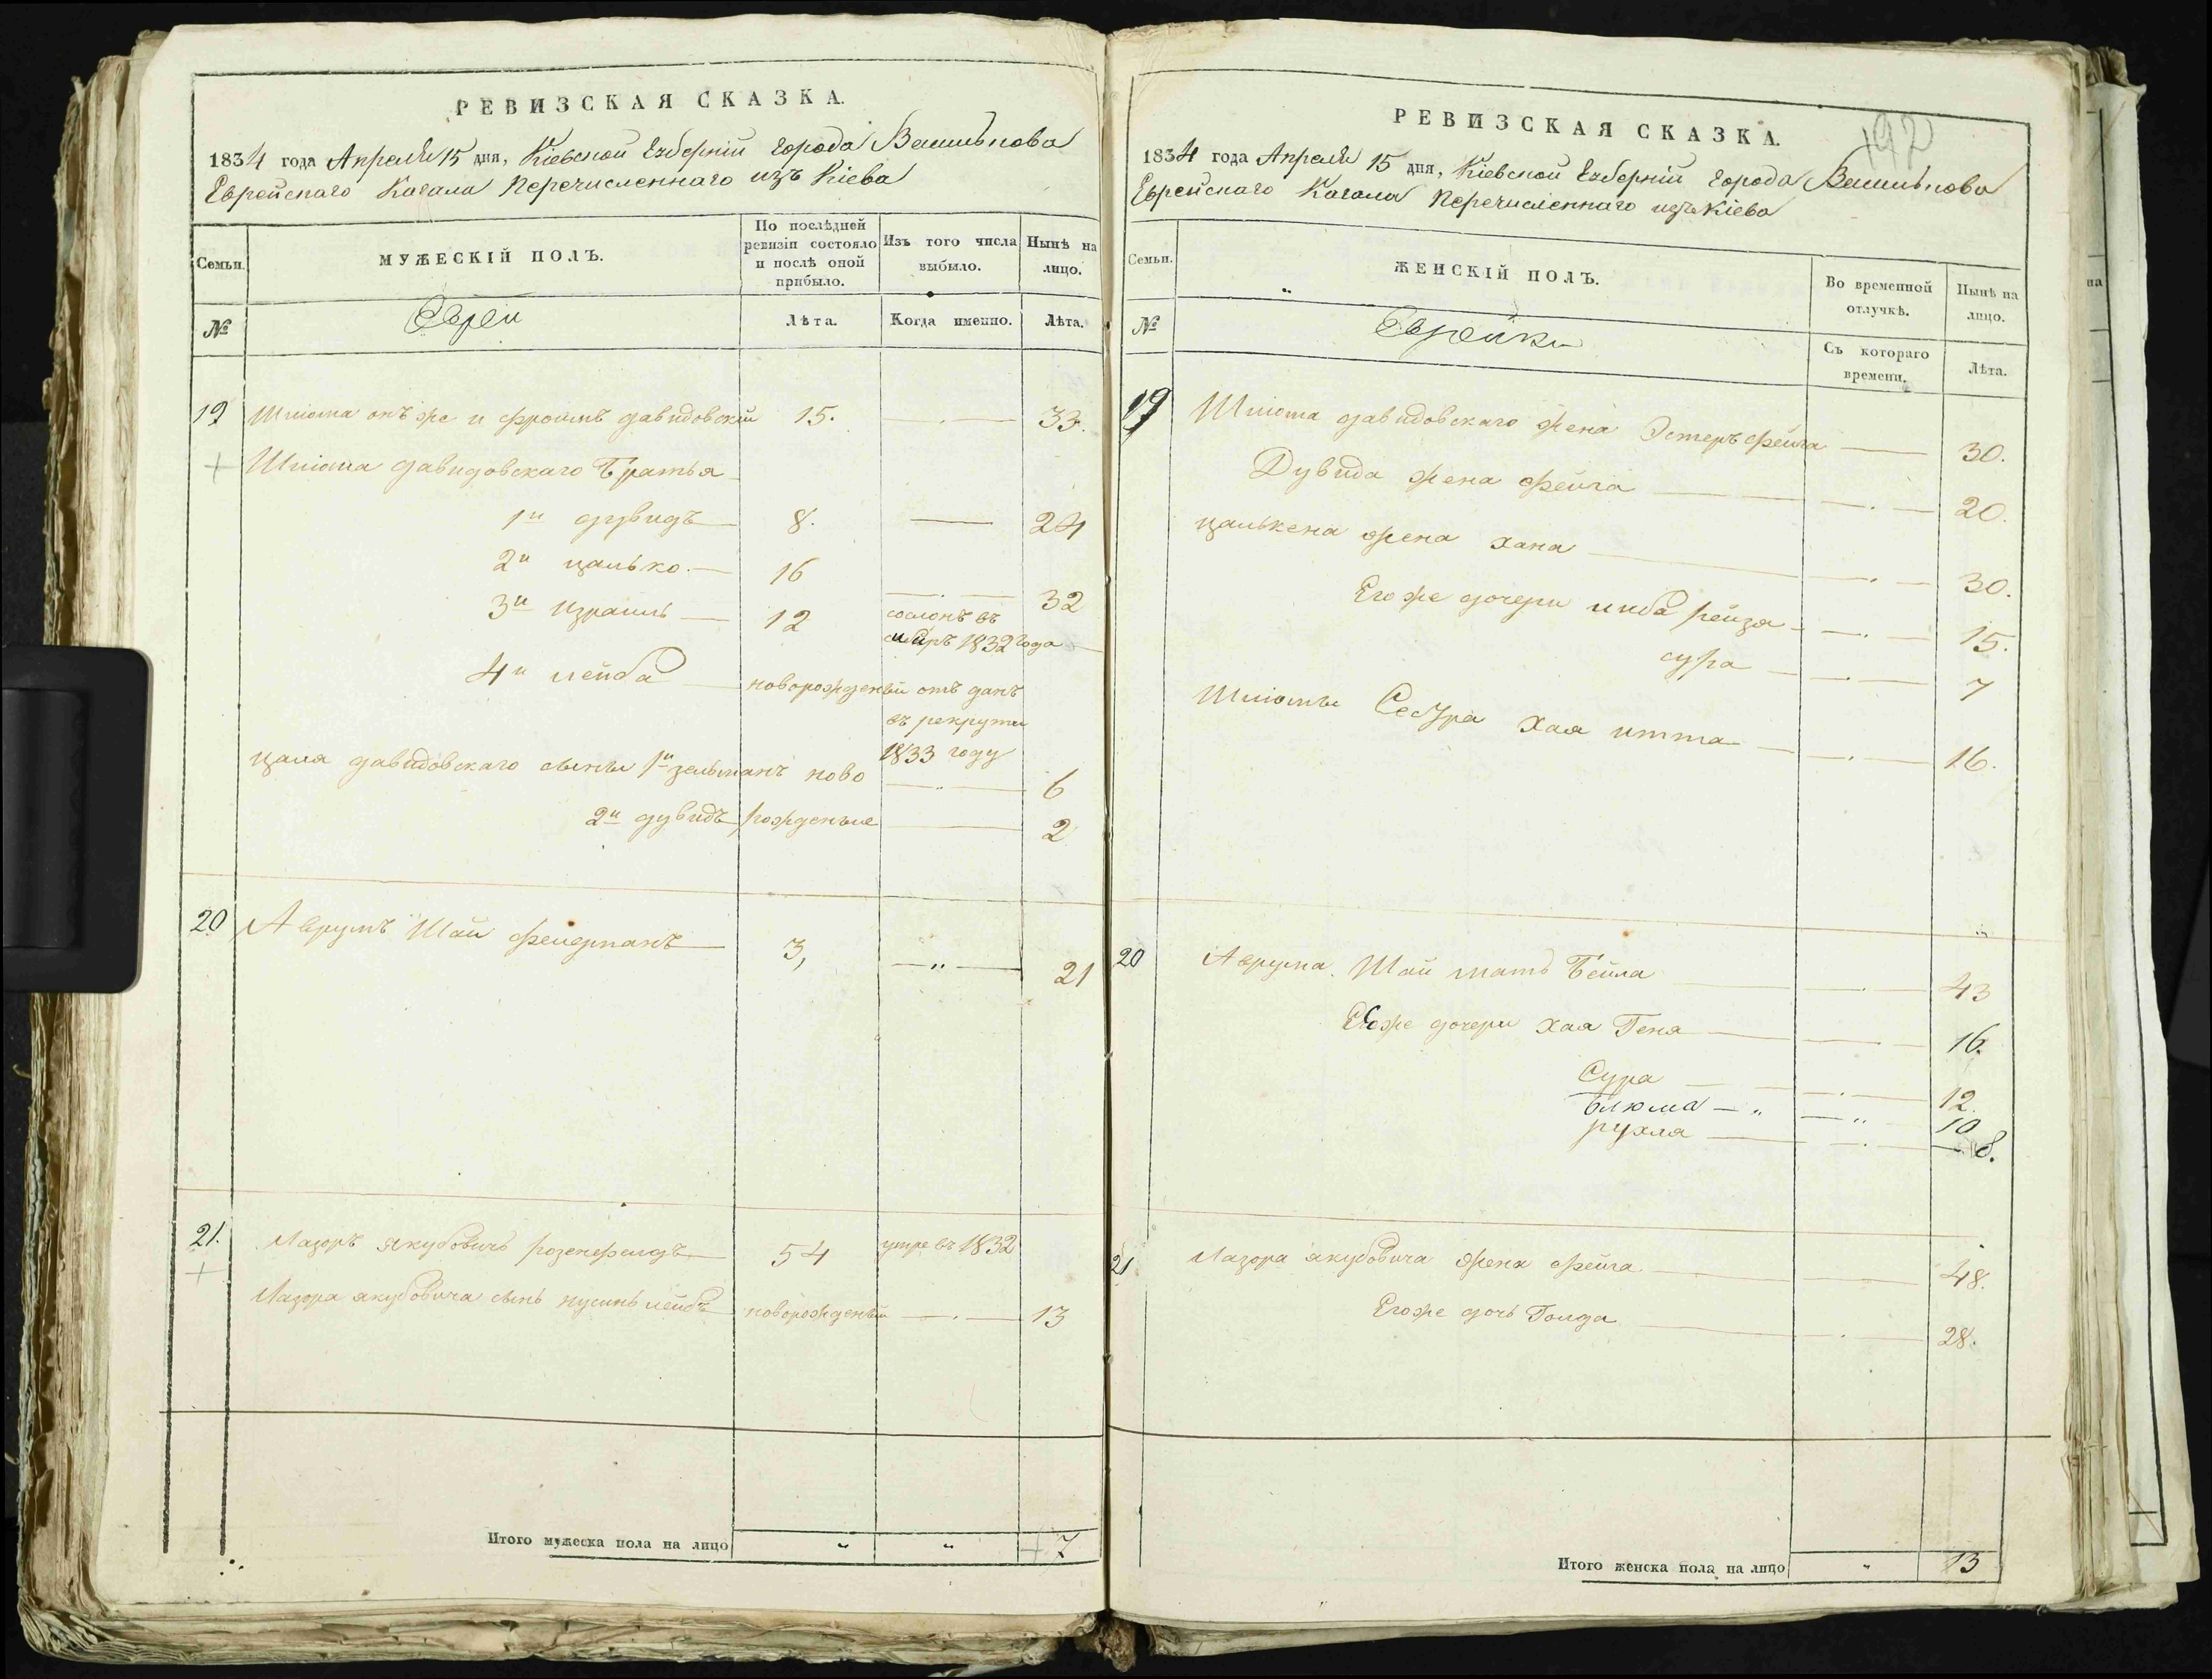 РЕВИЗСКАЯ СКАЗКА.
1834 года Апреля 15 дня, Кіевской Губерніи города Василькова
Еврейскаго Кагала Перечисленнаго изъ Кіева
Семьи.
МУЖЕСКІЙ ПОЛЪ.
По послѣдней ревизіи состояло и послѣ оной прибыло.
Изъ того числа выбыло.
Нынѣ на лицо.
№
Евреи
Лѣта.
Когда именно.
Лѣта.
19 Шліома онъ же и Фроимъ давидовскій 15. 33.
Шліома давидовскаго Братья
1й дувидъ 8. 24
2й цалько. 16 32
3й Израиль 12 сослонъ въ сибирь 1832 года
4й лейба новорожденый отъ данъ въ рекруты 1833 году
цаля давидовскаго сыны 1й зельманъ ново 6
2й дувидъ рожденые 2
20 Аврумъ Шай 3, 21
21. Лазоръ якубовичъ розенфелдъ 54 умре въ 1832
Лазора якубовича сынъ нусинъ лейбъ новорожденый 13
Итого мужеска пола на лицо " " 7
192
РЕВИЗСКАЯ СКАЗКА.
1834 года Апреля 15 дня, Кіевской Губерніи города Василькова
Еврейскаго Кагала Перечисленнаго изъ Кіева
Семьи.
ЖЕНСКІЙ ПОЛЪ.
Во временной отлучкѣ.
Нынѣ на лицо.
№
Еврейки
Съ котораго времени.
Лѣта.
19 Шліома давидовскаго жена Эстеръ фейга 30.
Дувида жена фейга 20.
цалькена жена хана 30.
Его же дочери либа рейза 15.
сура 7
Шліомы Сестра Хая итта 16.
20 Аврума Шай мать Бейла 43
Еяже дочери хая Геня 16.
Сура 12.
блюма 10
рухля 8.
21 Лазора якубовича жена фейга 48.
Егоже дочь Голда 28.
Итого женска пола на лицо " 13